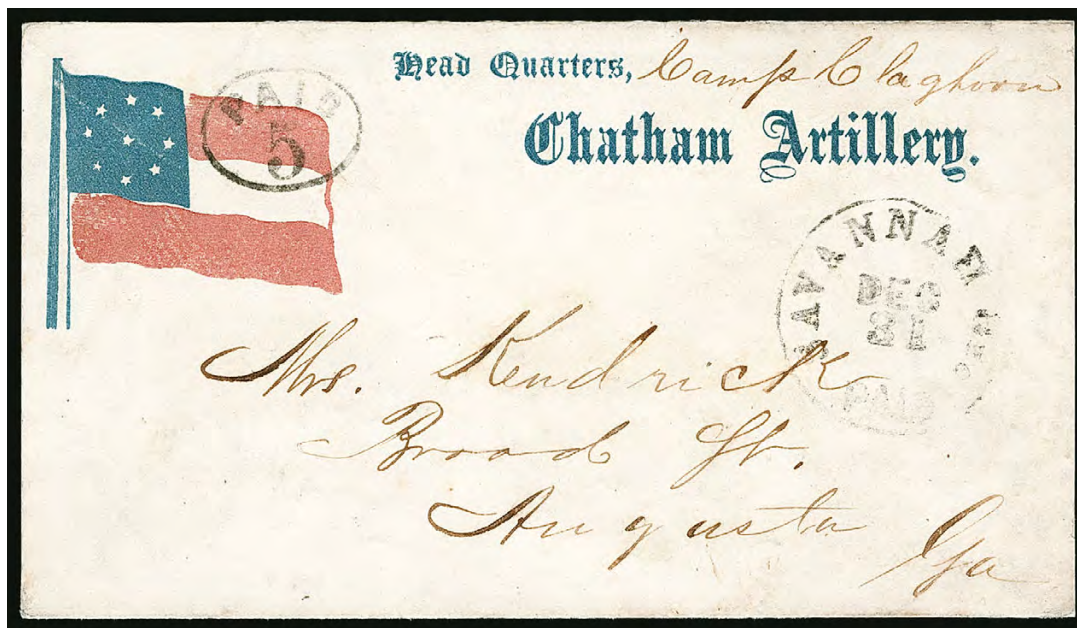 Head Quarters, Camp Claghorn
Chatham Artillery.
PAID
5
SAVANNAH
DEC
31
PAID
Mrs. Kendrick
Broad St.
Augusta
Ga